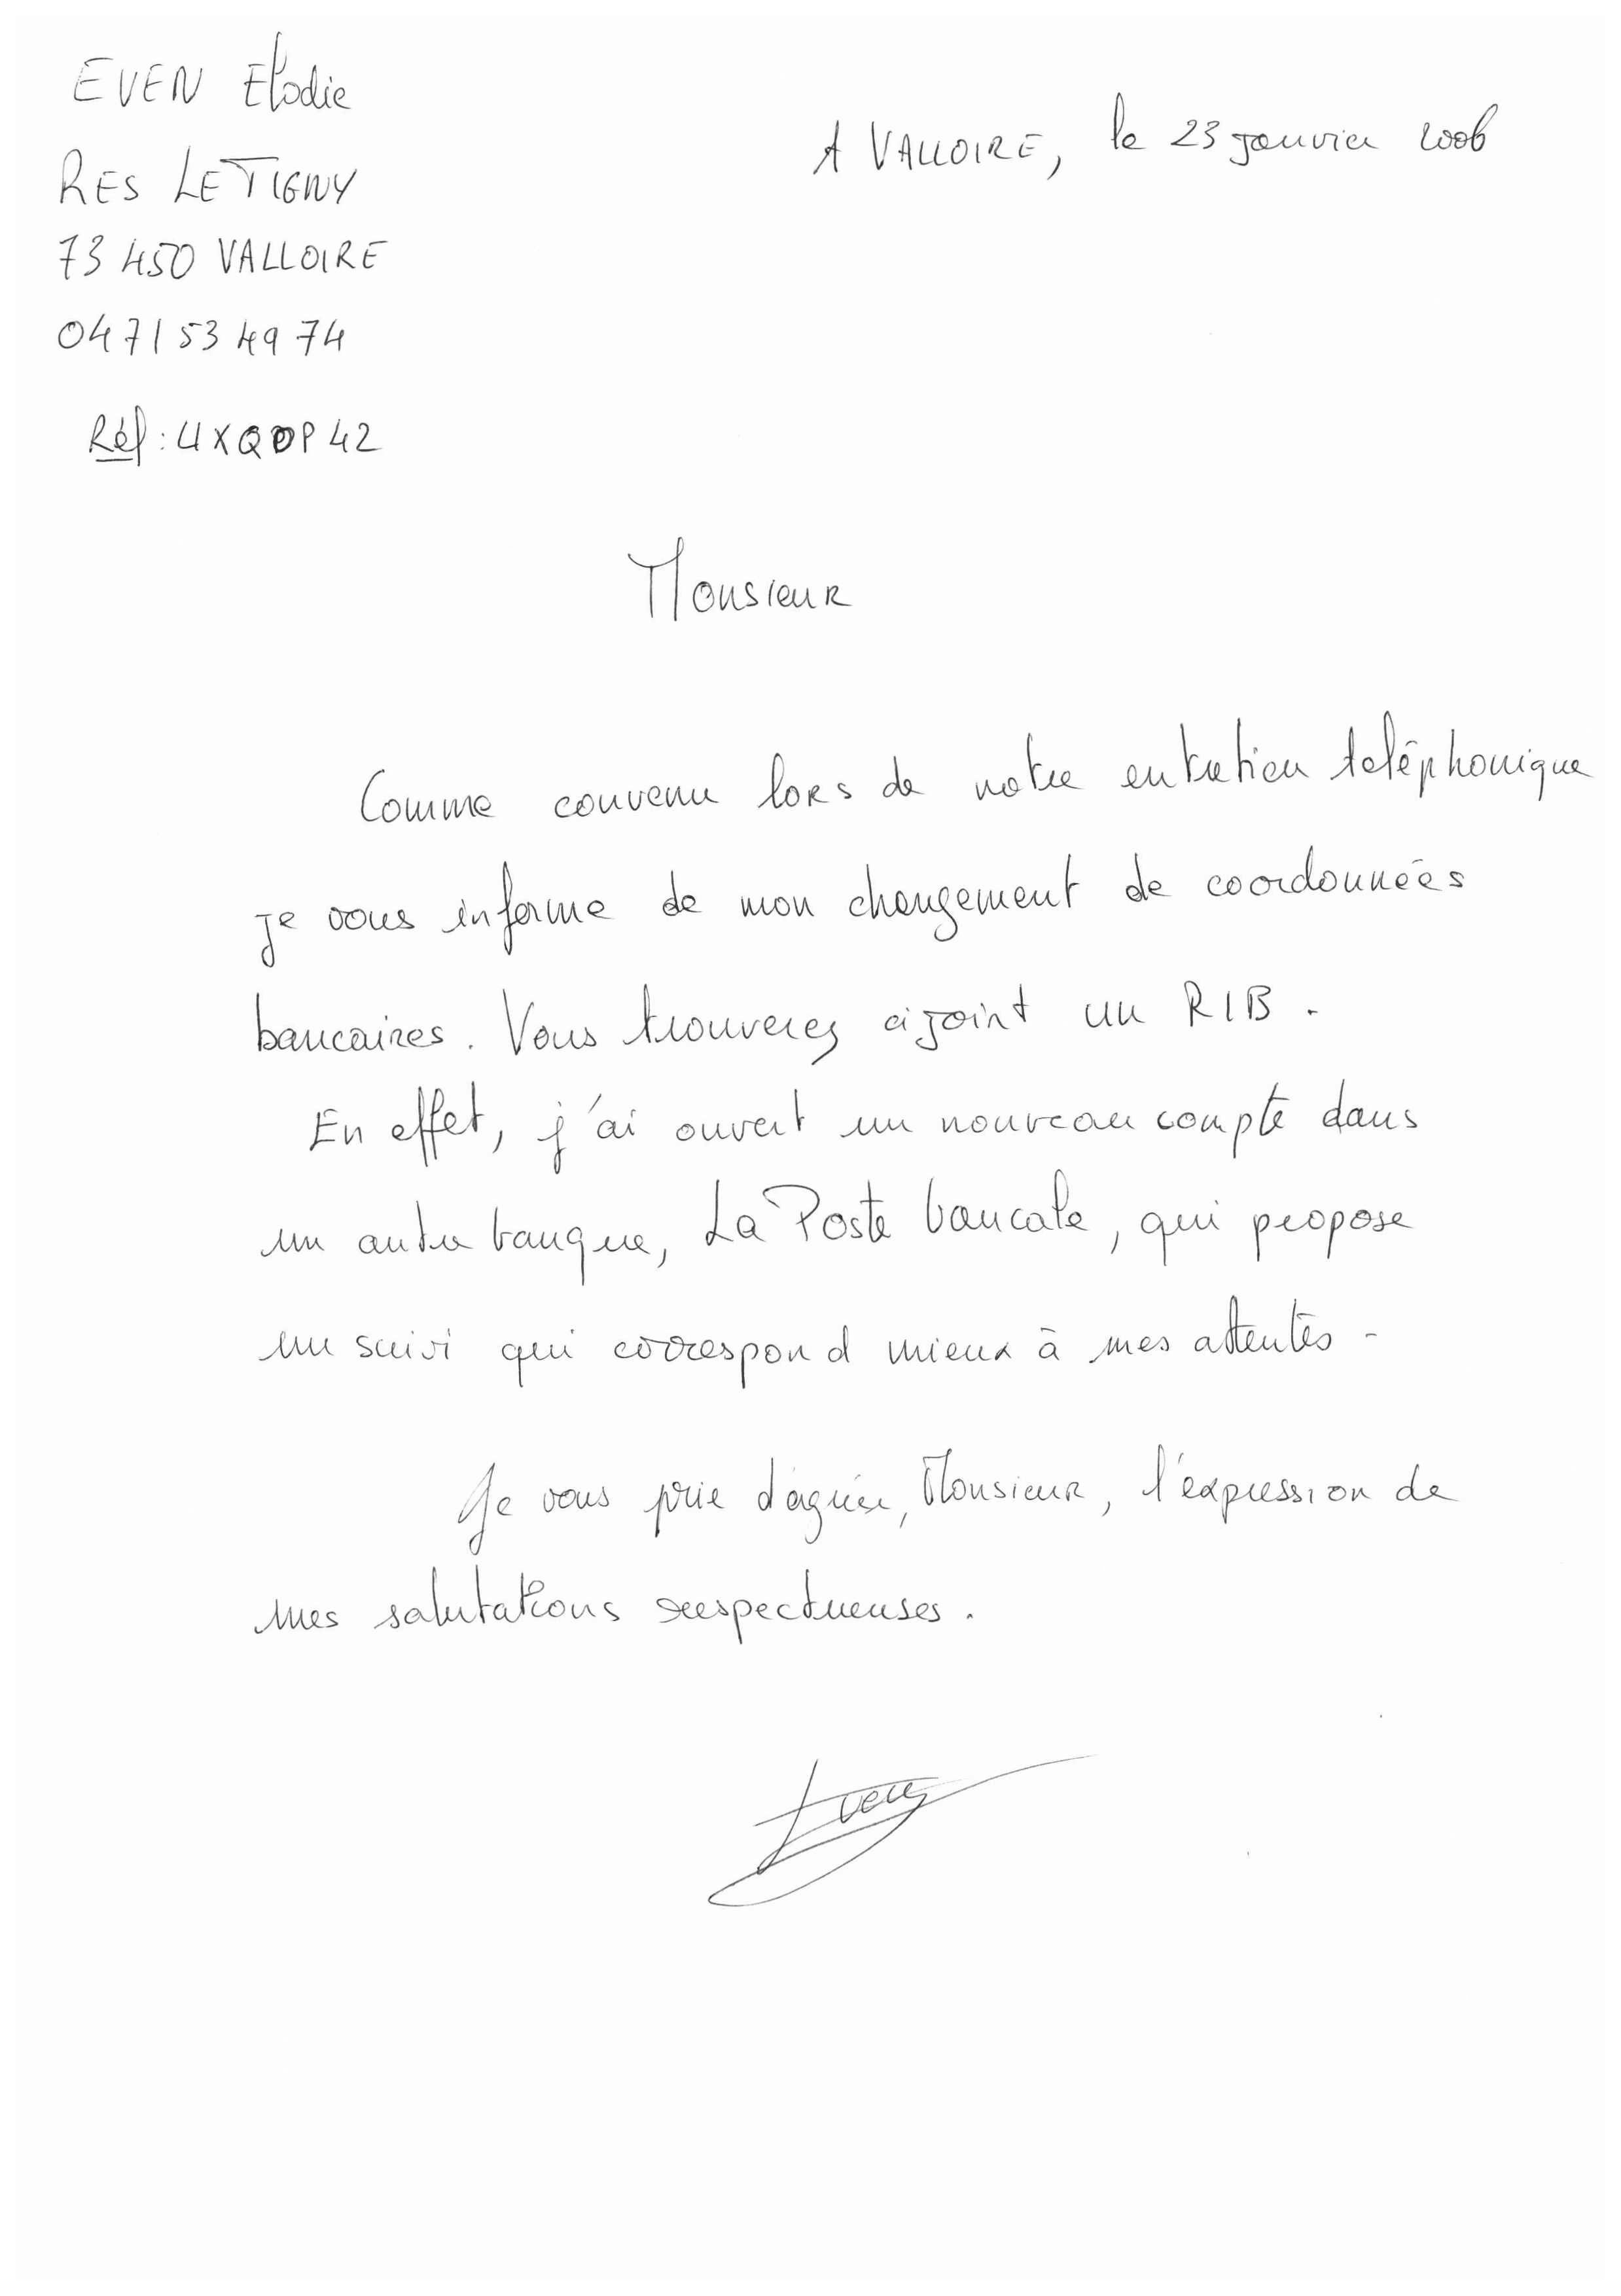 EVEN Elodie
A VALLOIRE, le 23 janvier 2006
RES LE TIGNY
73 450 VALLOIRE
04 71 53 49 74
Réf : UXQDP42
Monsieur
Comme convenu lors de notre entretien teléphonique
je vous informe de mon changement de coordonnées
bancaires. Vous trouverez ci joint un RIB.
En effet, j'ai ouvert un nouveau compte dans
un autre banque, La Poste bancale, qui propose
un suivi qui correspond mieux à mes attentes.
Je vous prie d'agréer, Monsieur, l'expression de
mes salutations respectueuses.
Even